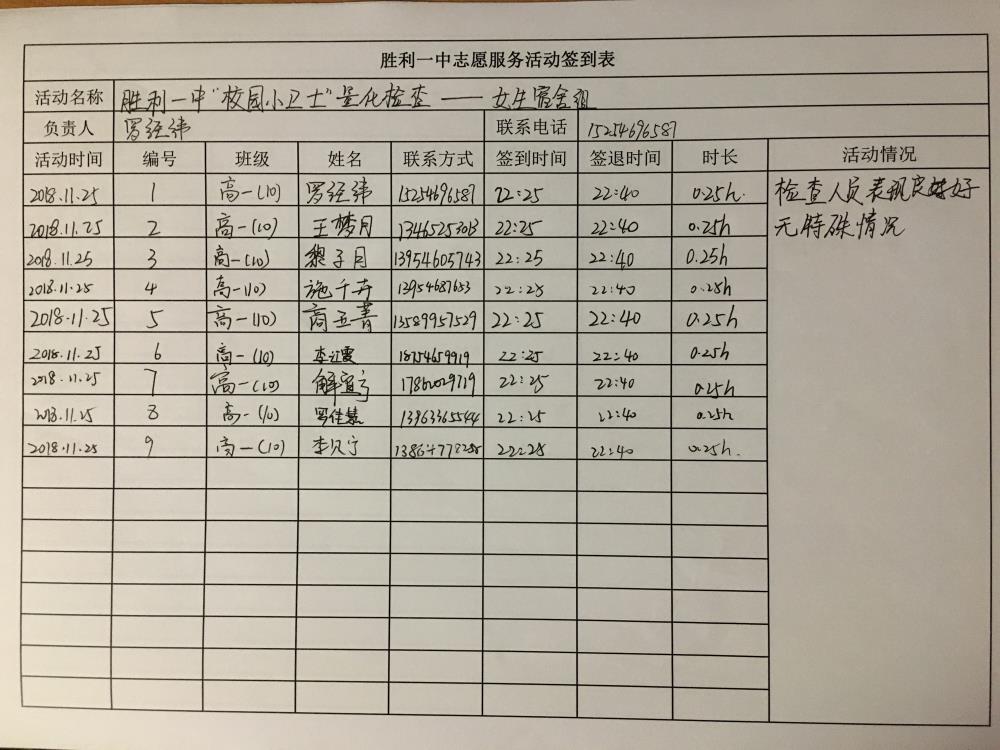 胜利一中志愿服务活动签到表
活动名称 胜利一中“校园小卫士”量化检查——女生宿舍组
负责人 罗经纬 联系电话 15254696587
活动时间 编号 班级 姓名 联系方式 签到时间 签退时间 时长 活动情况
2018.11.25 1 高一(10) 罗经纬 15254696587 22:25 22:40 0.25h. 检查人员表现良好
2018.11.25 2 高一(10) 王梦月 13465253013 22:25 22:40 0.25h 无特殊情况
2018.11.25 3 高一(10) 黎子月 13954605743 22:25 22:40 0.25h
2018.11.25 4 高一(10) 施千卉 13954687653 22:25 22:40 0.25h
2018.11.25 5 高一(10) 商五菁 13589957529 22:25 22:40 0.25h
2018.11.25 6 高一(10) 22:25 22:40 0.25h
2018.11.25 7 高一(10) 解宜亭 22:25 22:40 0.25h
2018.11.25 8 高一(10) 罗佳慧 13963365544 22:25 22:40 0.25h
2018.11.25 9 高一(10) 李贝宁 22:25 22:40 0.25h.